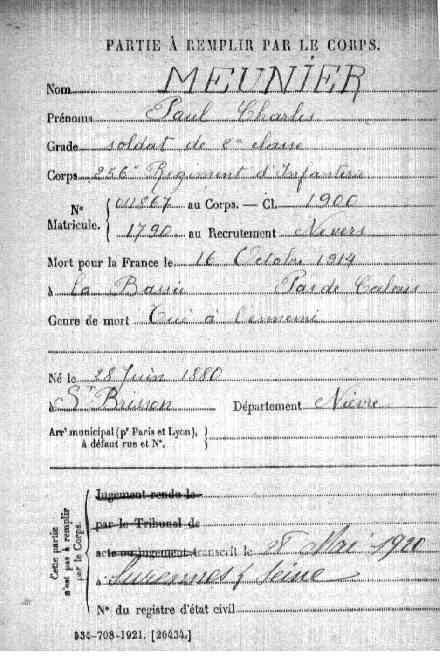 PARTIE À REMPLIR PAR LE CORPS.
Nom MEUNIER
Prénoms Paul Charles
Grade soldat de 2e classe
Corps 256e Régiment d'Infanterie
Nº Matricule. 011867 au Corps. — Cl. 1900
1790 au Recrutement Nevers
Mort pour la France le 16 Octobre 1914
à la Bassée Pas de Calais
Genre de mort Tué à l'ennemi
Né le 28 Juin 1880
à St Brisson Département Nièvre
Arrt municipal (pr Paris et Lyon),
à défaut rue et Nº.
Cette partie n'est pas à remplir par le Corps.
Jugement rendu le
par le Tribunal de
acte ou jugement transcrit le 28 Mai 1920
à Suresnes Seine
Nº du registre d'état civil
534-708-1921. [26434.]